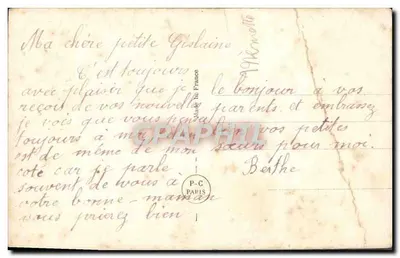 Ma chère petite Gislaine
C'est toujours
avec plaisir que je
reçois de vos nouvelles
je vois que vous pensez
toujours à moi
est de même de mon
coté car je parle
souvent de vous à
votre bonne-maman
vous priez bien
le bonjour à vos
parents et embrassez
vos petites
sœurs pour moi.
Berthe
Made in France
P-C
PARIS
CPAPHIL